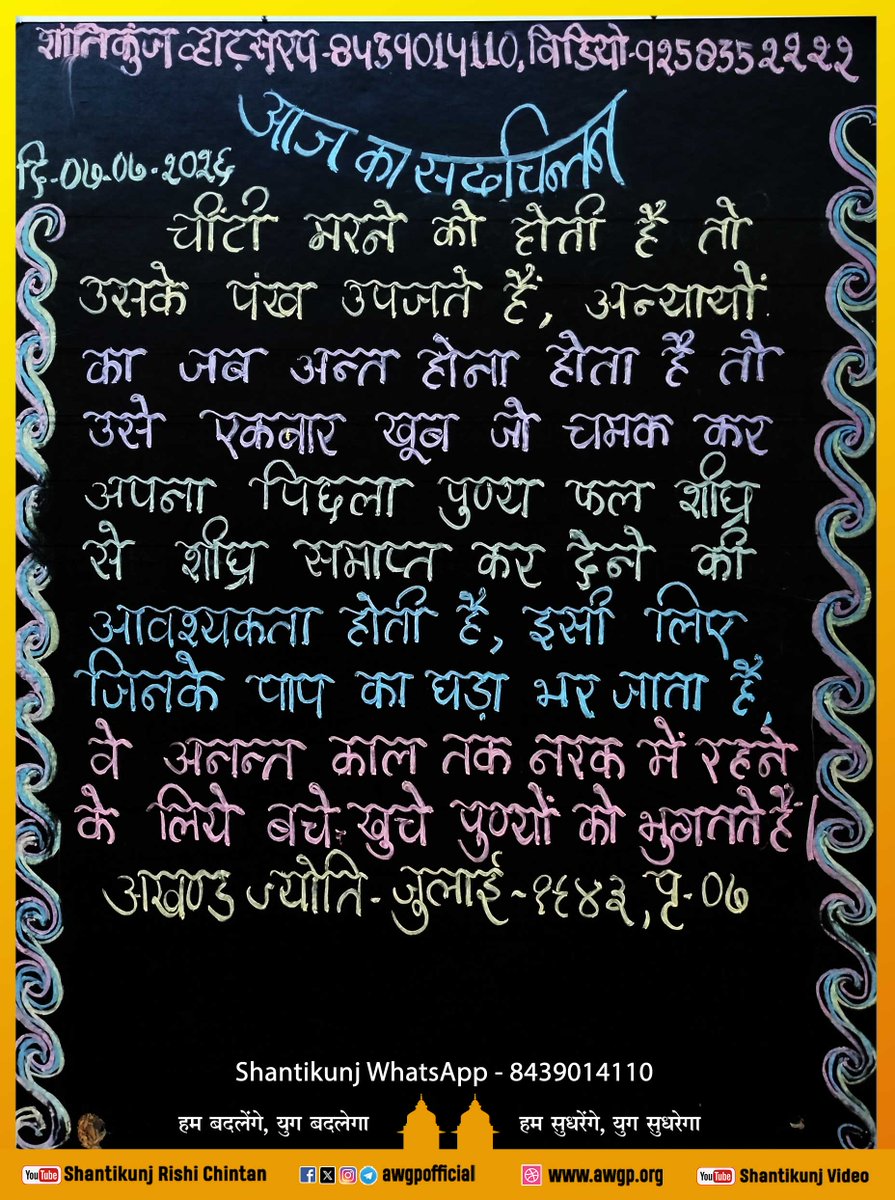 शांतिकुंज व्हाट्सएप-8439014110, विडियो-९258352222
आज का सद्चिन्तन
दि-०७-०७-२०२६
चींटी मरने को होती है तो
उसके पंख उपजते हैं, अन्यायों
का जब अन्त होना होता है तो
उसे एकबार खूब जो चमक कर
अपना पिछला पुण्य फल शीघ्र
से शीघ्र समाप्त कर देने की
आवश्यकता होती है, इसी लिए
जिनके पाप का घड़ा भर जाता है,
वे अनन्त काल तक नरक में रहने
के लिये बचे-खुचे पुण्यों को भुगतते हैं।
अखण्ड ज्योति-जुलाई-१९४३, पृ-०७
Shantikunj WhatsApp - 8439014110
हम बदलेंगे, युग बदलेगा हम सुधरेंगे, युग सुधरेगा
YouTube Shantikunj Rishi Chintan awgpofficial www.awgp.org YouTube Shantikunj Video